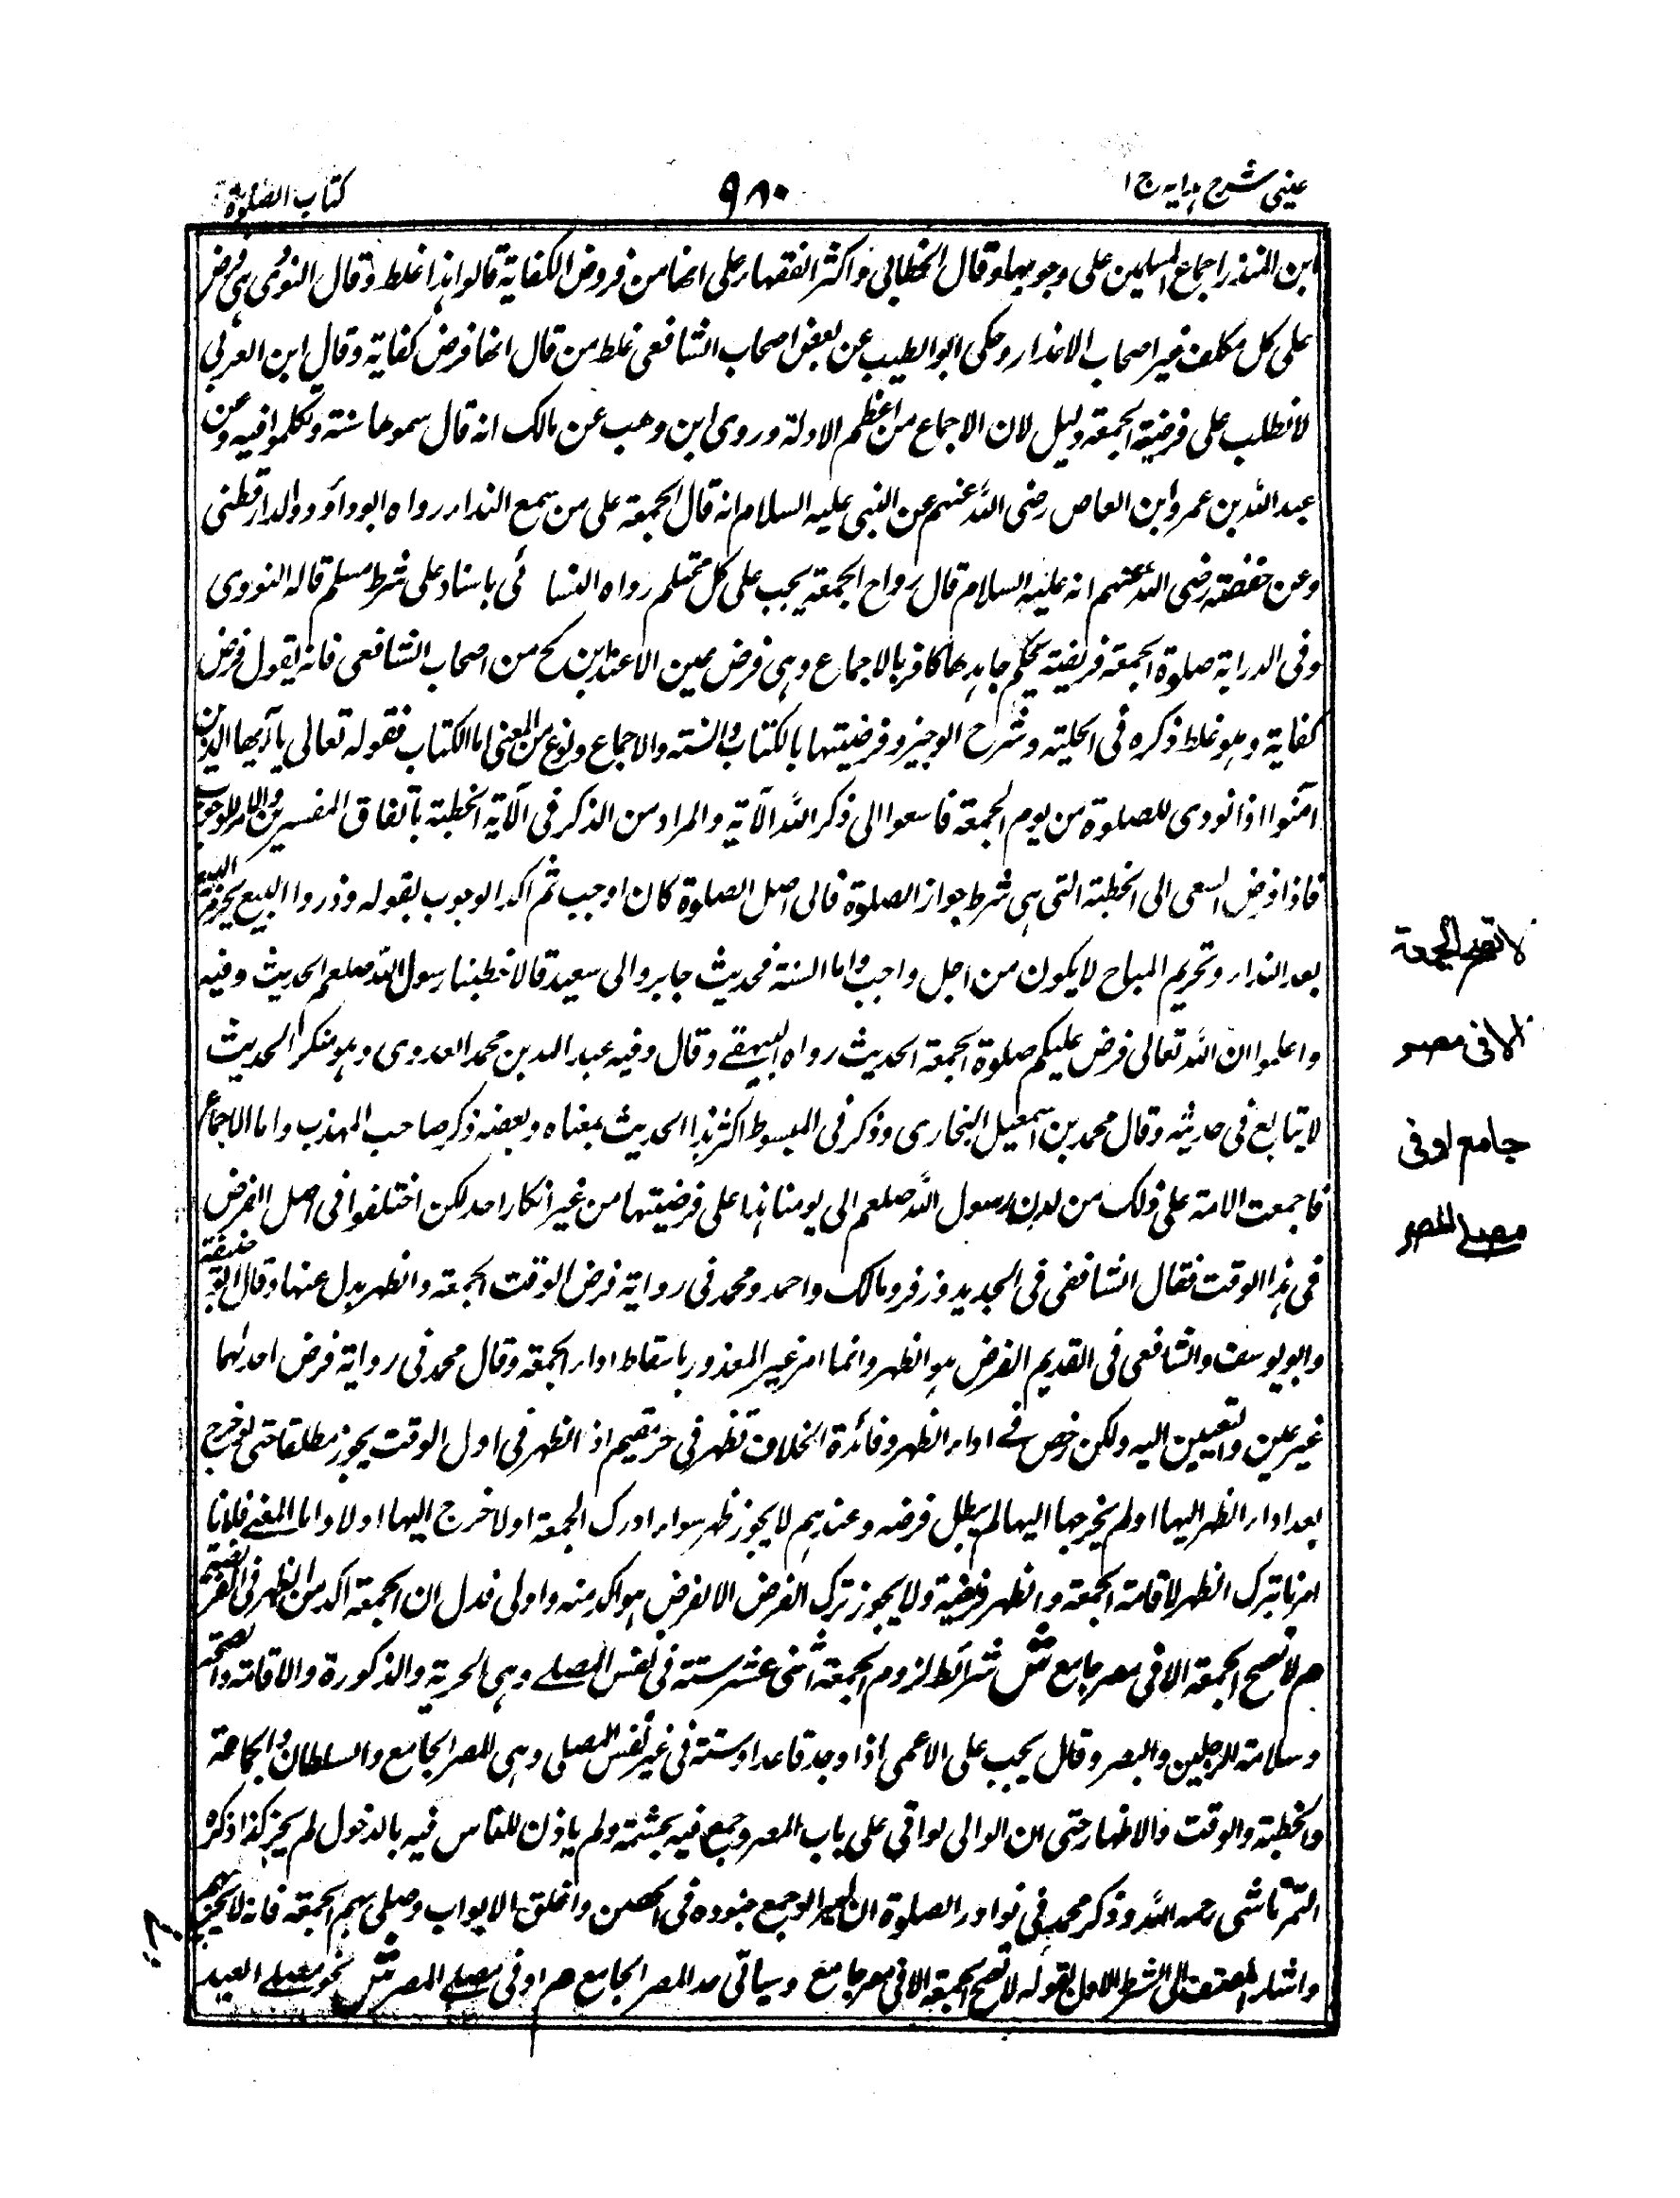 عینی شرح ہدایہ ج ا
۹۸۰
کتاب الصلوٰۃ
ابن المنذر اجماع المسلمین علی وجوبہا وقال الخطابی واکثر الفقہاء علی انھا من فروض الکفایۃ قالوا ہذا غلط وقال النووی ہی فرض
علی کل مکلف غیر اصحاب الاعذار وحکی ابو الطیب عن بعض اصحاب الشافعی غلط من قال انھا فرض کفایۃ وقال ابن العربی
لا نطلب علی فرضیۃ الجمعۃ دلیل لان الاجماع من اعظم الادلۃ وروی ابن وھب عن مالک انہ قال سموھا سنۃ وتکلموا فیہ وعن
عبد اللہ بن عمرو ابن العاص رضی اللہ عنہم عن النبی علیہ السلام انہ قال الجمعۃ علی من سمع النداء رواہ ابو داؤد والدارقطنی
وعن حفصۃ رضی اللہ عنہم انہ علیہ السلام قال رواح الجمعۃ یجب علی کل محتلم رواہ النسائی باسناد علی شرط مسلم قالہ النووی
وفی الدرایۃ صلوۃ الجمعۃ فریضۃ محکم جاہدھا کافر بالاجماع وہی فرض عین الا عند ابن کج من اصحاب الشافعی فانہ یقول فرض
کفایۃ وہو غلط ذکرہ فی الحلیۃ وشرح الوجیز وفرضیتہا بالکتاب والسنۃ والاجماع ونوع من المعنی اما الکتاب فقولہ تعالی یآ ایہا الذین
آمنوا اذا نودی للصلوۃ من یوم الجمعۃ فاسعوا الی ذکر اللہ الآیۃ والمراد من الذکر فی الآیۃ الخطبۃ باتفاق المفسرین والامر للوجوب
فاذا فرض السعی الی الخطبۃ التی ہی شرط جواز الصلوۃ فالی اصل الصلوۃ کان اوجب ثم اکد الوجوب بقولہ وذروا البیع بحرمۃ البیع
بعد النداء وتحریم المباح لا یکون من اجل واجب واما السنۃ فحدیث جابر وابی سعید قالا خطبنا رسول اللہ صلعم الحدیث وفیہ
واعلموا ان اللہ تعالی فرض علیکم صلوۃ الجمعۃ الحدیث رواہ البیہقے وقال وفیہ عبد اللہ بن محمد العدوی وہو منکر الحدیث
لا یتابع فی حدیثہ وقال محمد بن اسمعیل البخاری وذکر فی المبسوط اکثر ہذا الحدیث بمعناہ وبعضہ ذکر صاحب المہذب واما الاجماع
فاجمعت الامۃ علی ذلک من لدن رسول اللہ صلعم الی یومنا ہذا علی فرضیتہا من غیر انکار احد لکن اختلفوا فی اصل الفرض
فی ہذا الوقت فقال الشافعی فی الجدید وزفر ومالک واحمد ومحمد فی روایۃ فرض الوقت الجمعۃ والظہر بدل عنہا وقال ابو حنیفۃ
وابو یوسف والشافعی فی القدیم الفرض ہو الظہر وانما امر غیر المعذور باسقاط اداء الجمعۃ وقال محمد فی روایۃ فرض احدہما
غیر عین والتعیین الیہ ولکن خص فے اداء الظہر وفائدۃ الخلاف تظہر فی حر مقیم اذ الظہر فی اول الوقت یجوز مطلقا حتی لو خرج
بعد اداء الظہر الیہا او لم یخرجہا الیہا لم یبطل فرضہ وعندہم لا یجوز ظہر سواء ادرک الجمعۃ اولا خرج الیہا اولا واما المعنی فلانا
امرنا بترک الظہر لاقامۃ الجمعۃ والظہر فریضۃ ولا یجوز ترک الفرض الا لفرض ہو اکد منہ واولی فدل ان الجمعۃ اکد من الظہر فی الفرضیۃ
ھم لا تصح الجمعۃ الا فی مصر جامع ش شرائط لزوم الجمعۃ اثنی عشر ستۃ فی نفس المصلے وہی الحریۃ والذکورۃ والاقامۃ والصحۃ
وسلامۃ الرجلین والبصر وقال یجب علی الاعمی اذا وجد قاعدا وستۃ فی غیر نفس المصلی وہی المصر الجامع والسلطان والجماعۃ
والخطبۃ والوقت والاظہار حتی ان الوالی لو اقی علی باب المصر وجمع فیہ بحشمۃ ولم یاذن للناس فیہ بالدخول لم یجز کذا ذکرہ
التمرتاشی رحمہ اللہ وذکر محمد فی نوادر الصلوۃ ان الامیر لو جمع جنودہ فی الحصن واغلق الابواب وصلی بہم الجمعۃ فانہ لا یجزیہم
واشار المصنف الی الشرط الاول بقولہ لا تصح الجمعۃ الا فی مصر جامع وسیاتی حد المصر الجامع ھم او فی مصلے المصر ش نحو مصلے العید
لا تصح الجمعۃ
الا فی مصر
جامع او فی
مصلے المصر